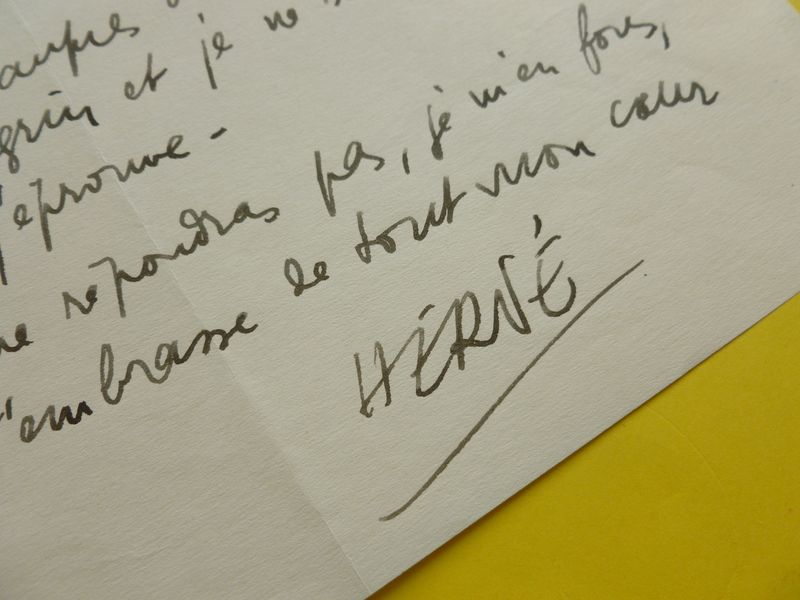 auprès
grin et je ne
j'éprouve -
me répondras pas, je m'en fous,
t'embrasse de tout mon cœur
HERVÉ